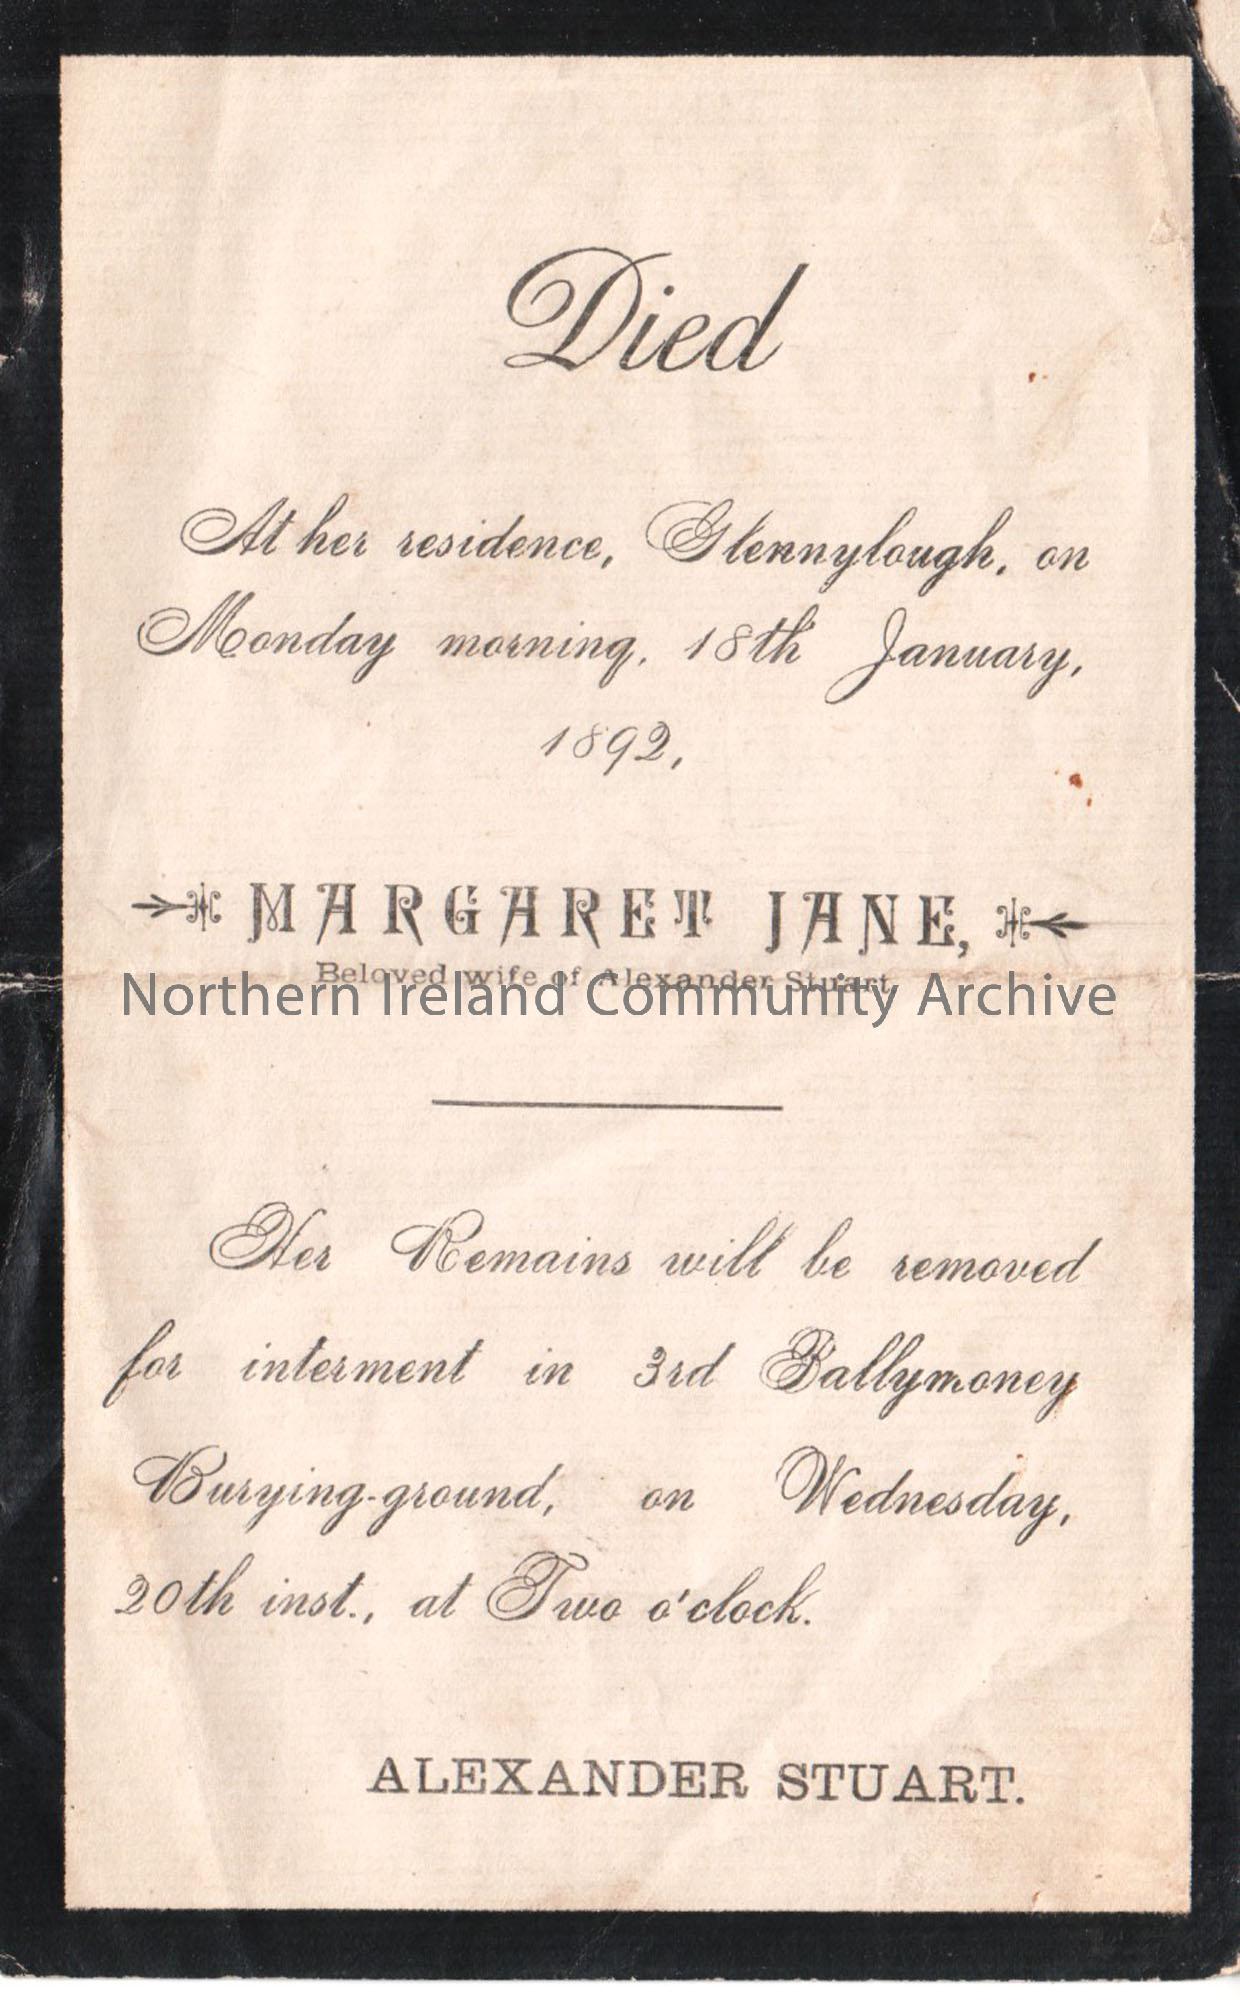 Died
At her residence, Glennylough, on
Monday morning, 18th January,
1892,
MARGARET JANE,
Beloved wife of Alexander Stuart
Northern Ireland Community Archive
Her Remains will be removed
for interment in 3rd Ballymoney
Burying-ground, on Wednesday,
20th inst., at Two o'clock.
ALEXANDER STUART.